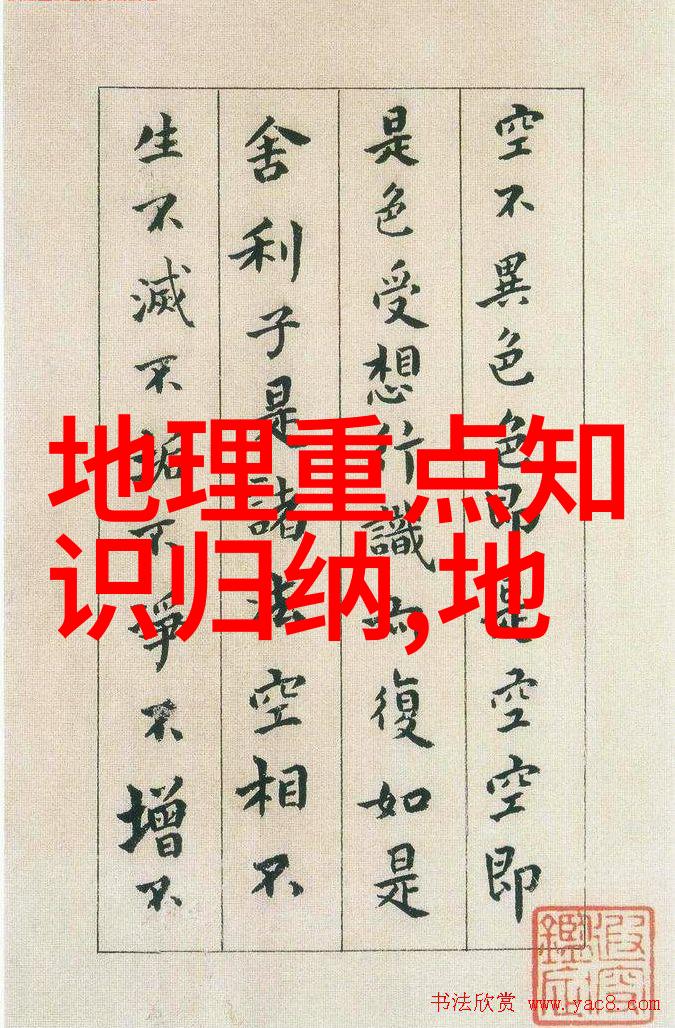 空不異色色即是空空即
是色受想行識亦復如是
舍利子是諸法空相不
生不滅不垢不淨不增不
地理重点知
识归纳,地
书法欣赏 www.yac8.com